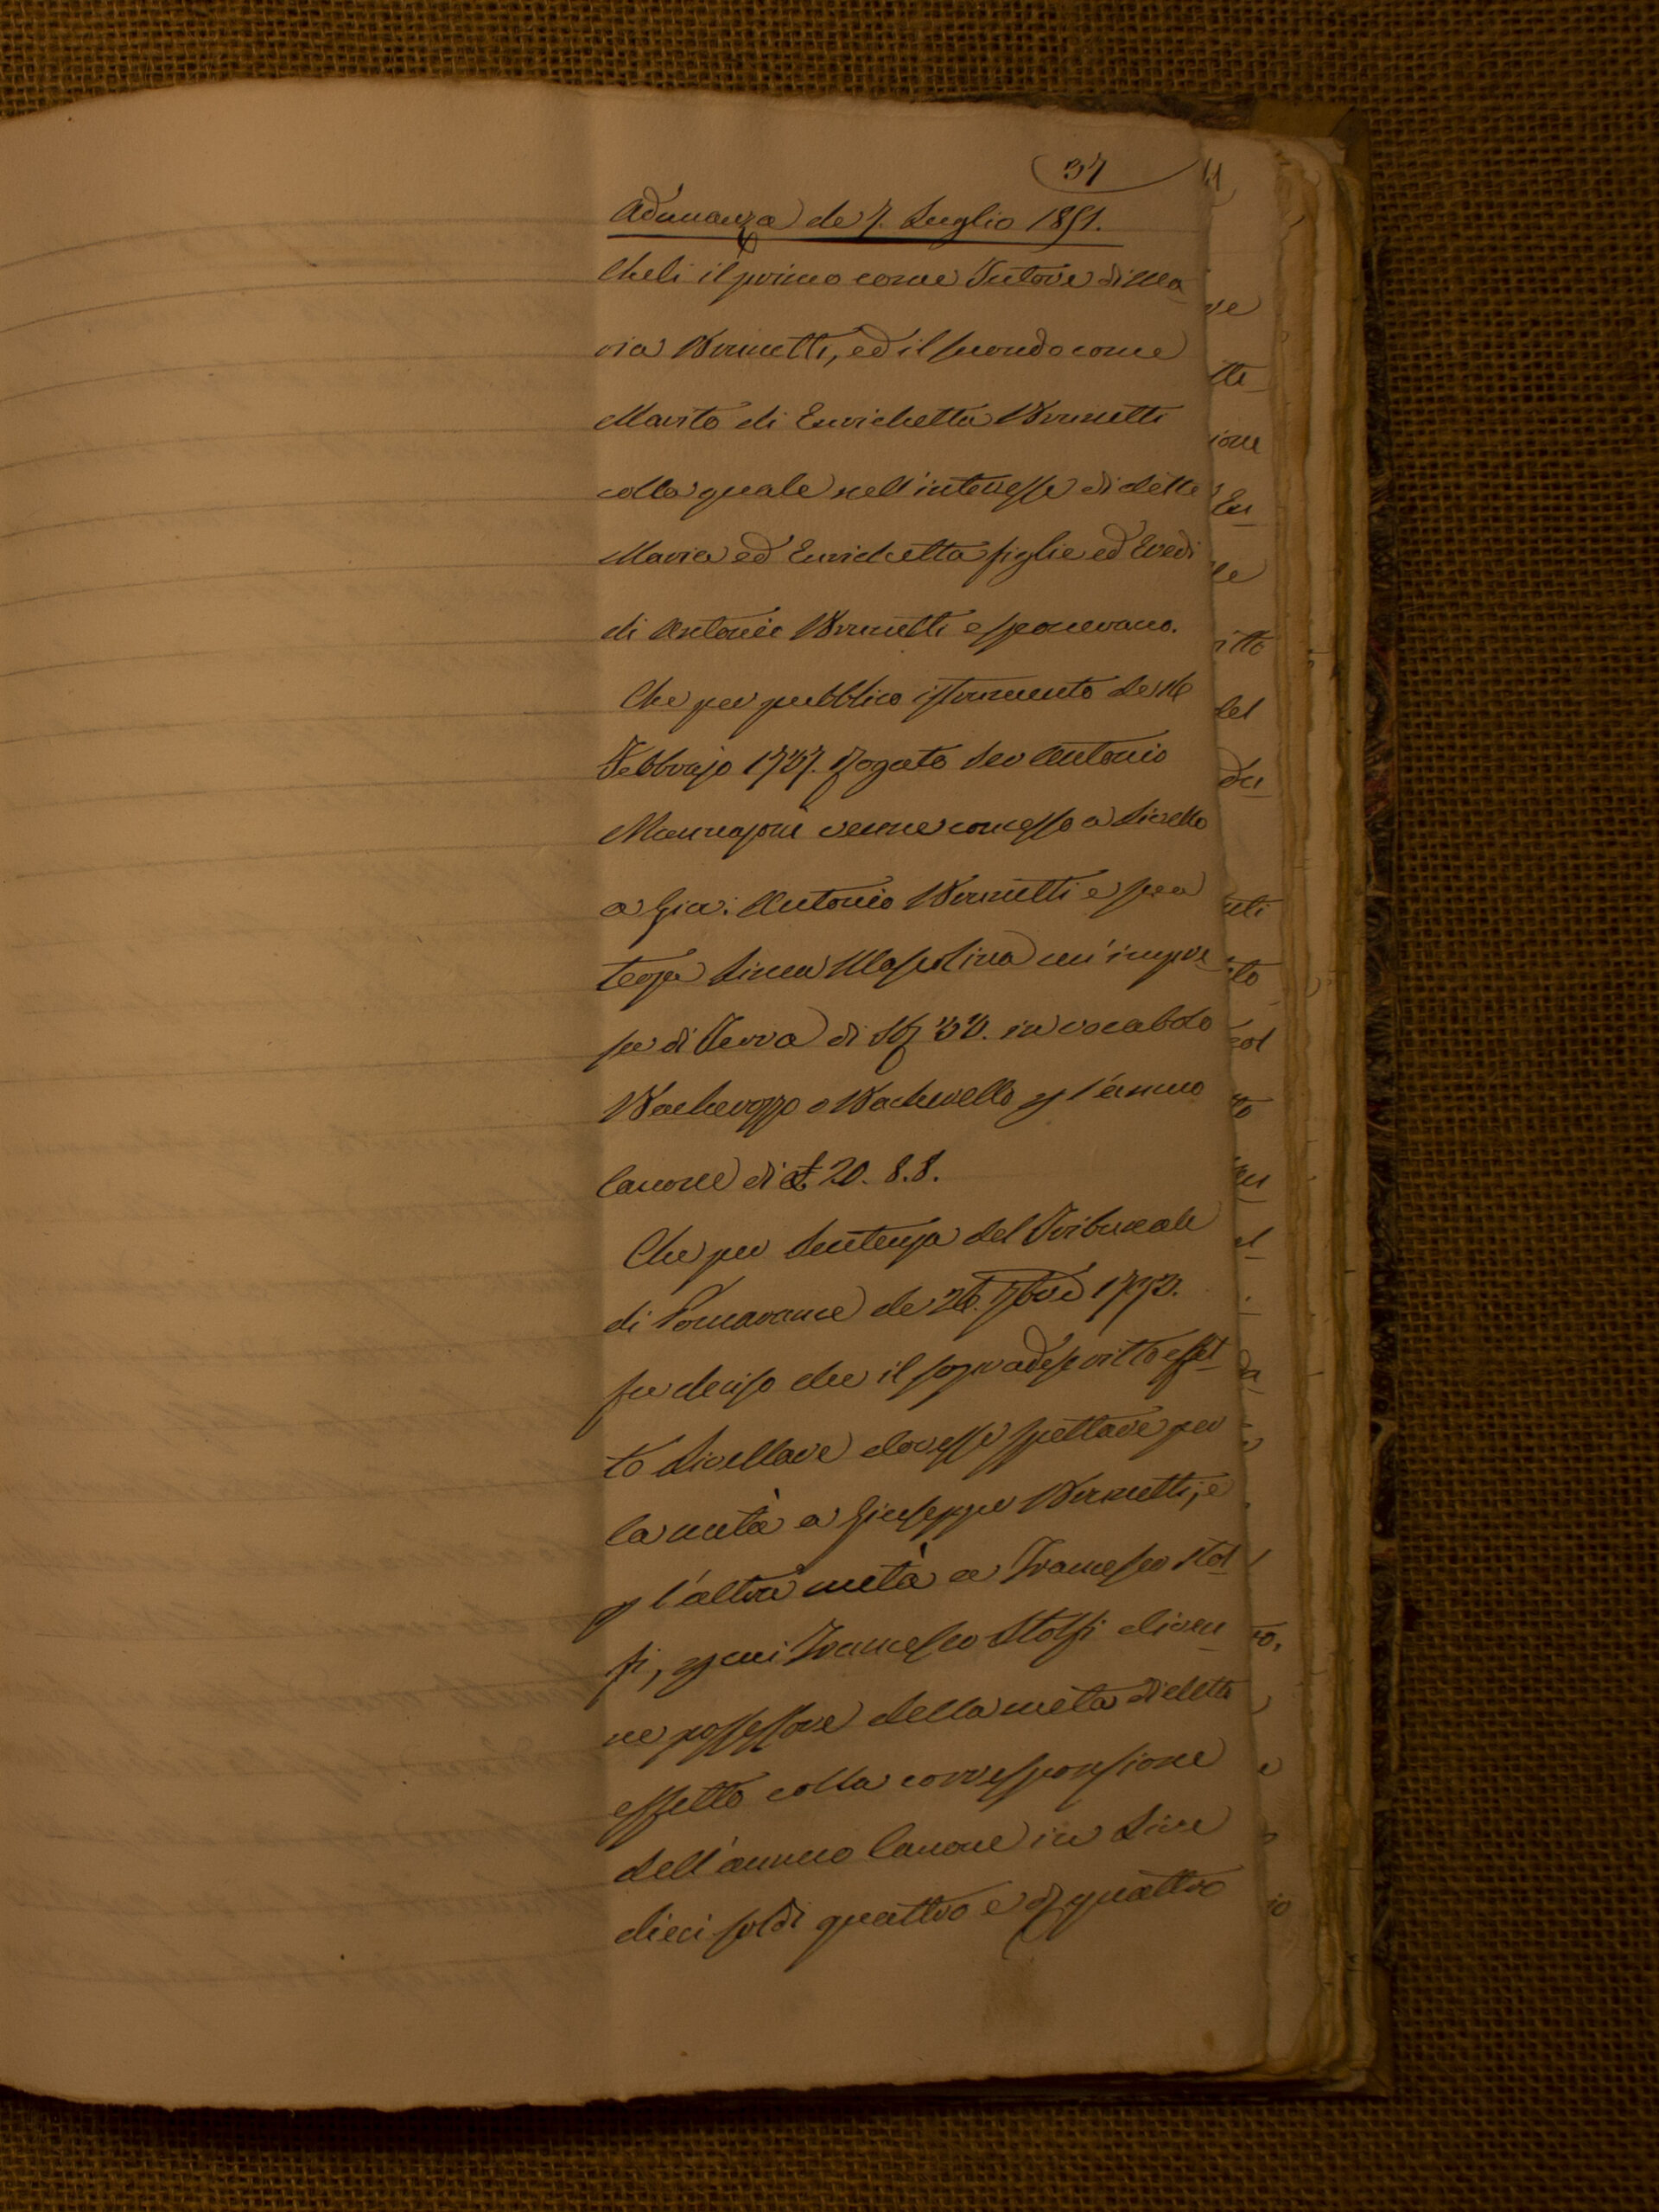 37
Adunanza de' 7. Luglio 1851.
Cheli il primo come Tutore di Ma
ria Brunetti, ed il secondo come
Marito di Enrichetta Brunetti
colla quale nell'interesse di dette
Maria ed Enrichetta figlie ed Eredi
di Antonio Brunetti esponevano.
Che per pubblico istrumento de' 16
Febbrajo 1737. rogato Ser Antonio
venne concesso a Livello
a Gio: Antonio Brunetti e sua
terza Linea Mascolina un'impre
sa di Terra di 30. in vocabolo
Bacherozzo o Bacherello p l'annuo
Canone di £ 20. 8. 8.
Che per Sentenza del Tribunale
di Pomarance de' 26. 7bre 1792.
fu deciso che il sopradescritto effet
to Livellare dovesse spettare per
la metà a Giuseppe Brunetti, e
p l'altra metà a Francesco Stol
fi, p cui Francesco Stolfi diven
ne possessore della metà di detto
effetto colla corresponsione
dell'annuo Canone in Lire
dieci soldi quattro e d quattro
ve
tte
ione
En
le
itto
del
du
to
col
to
el
da
ro,
e
io